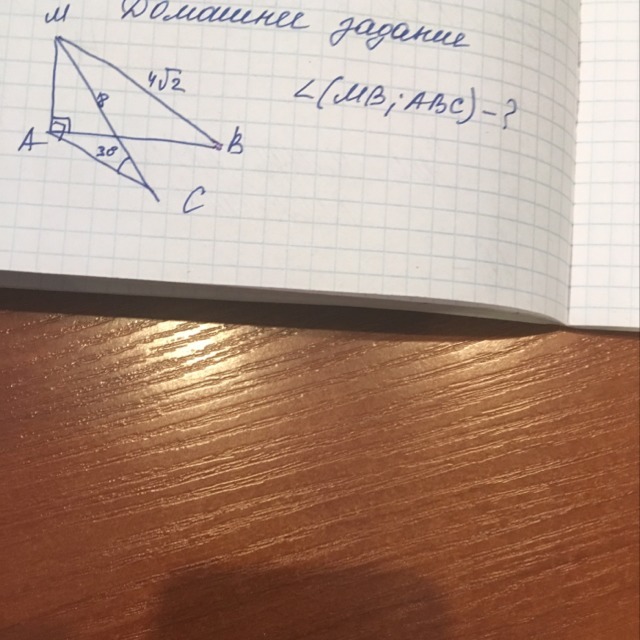 M Домашнее задание
4√2
8
∠(MB; ABC) - ?
A
B
30
C